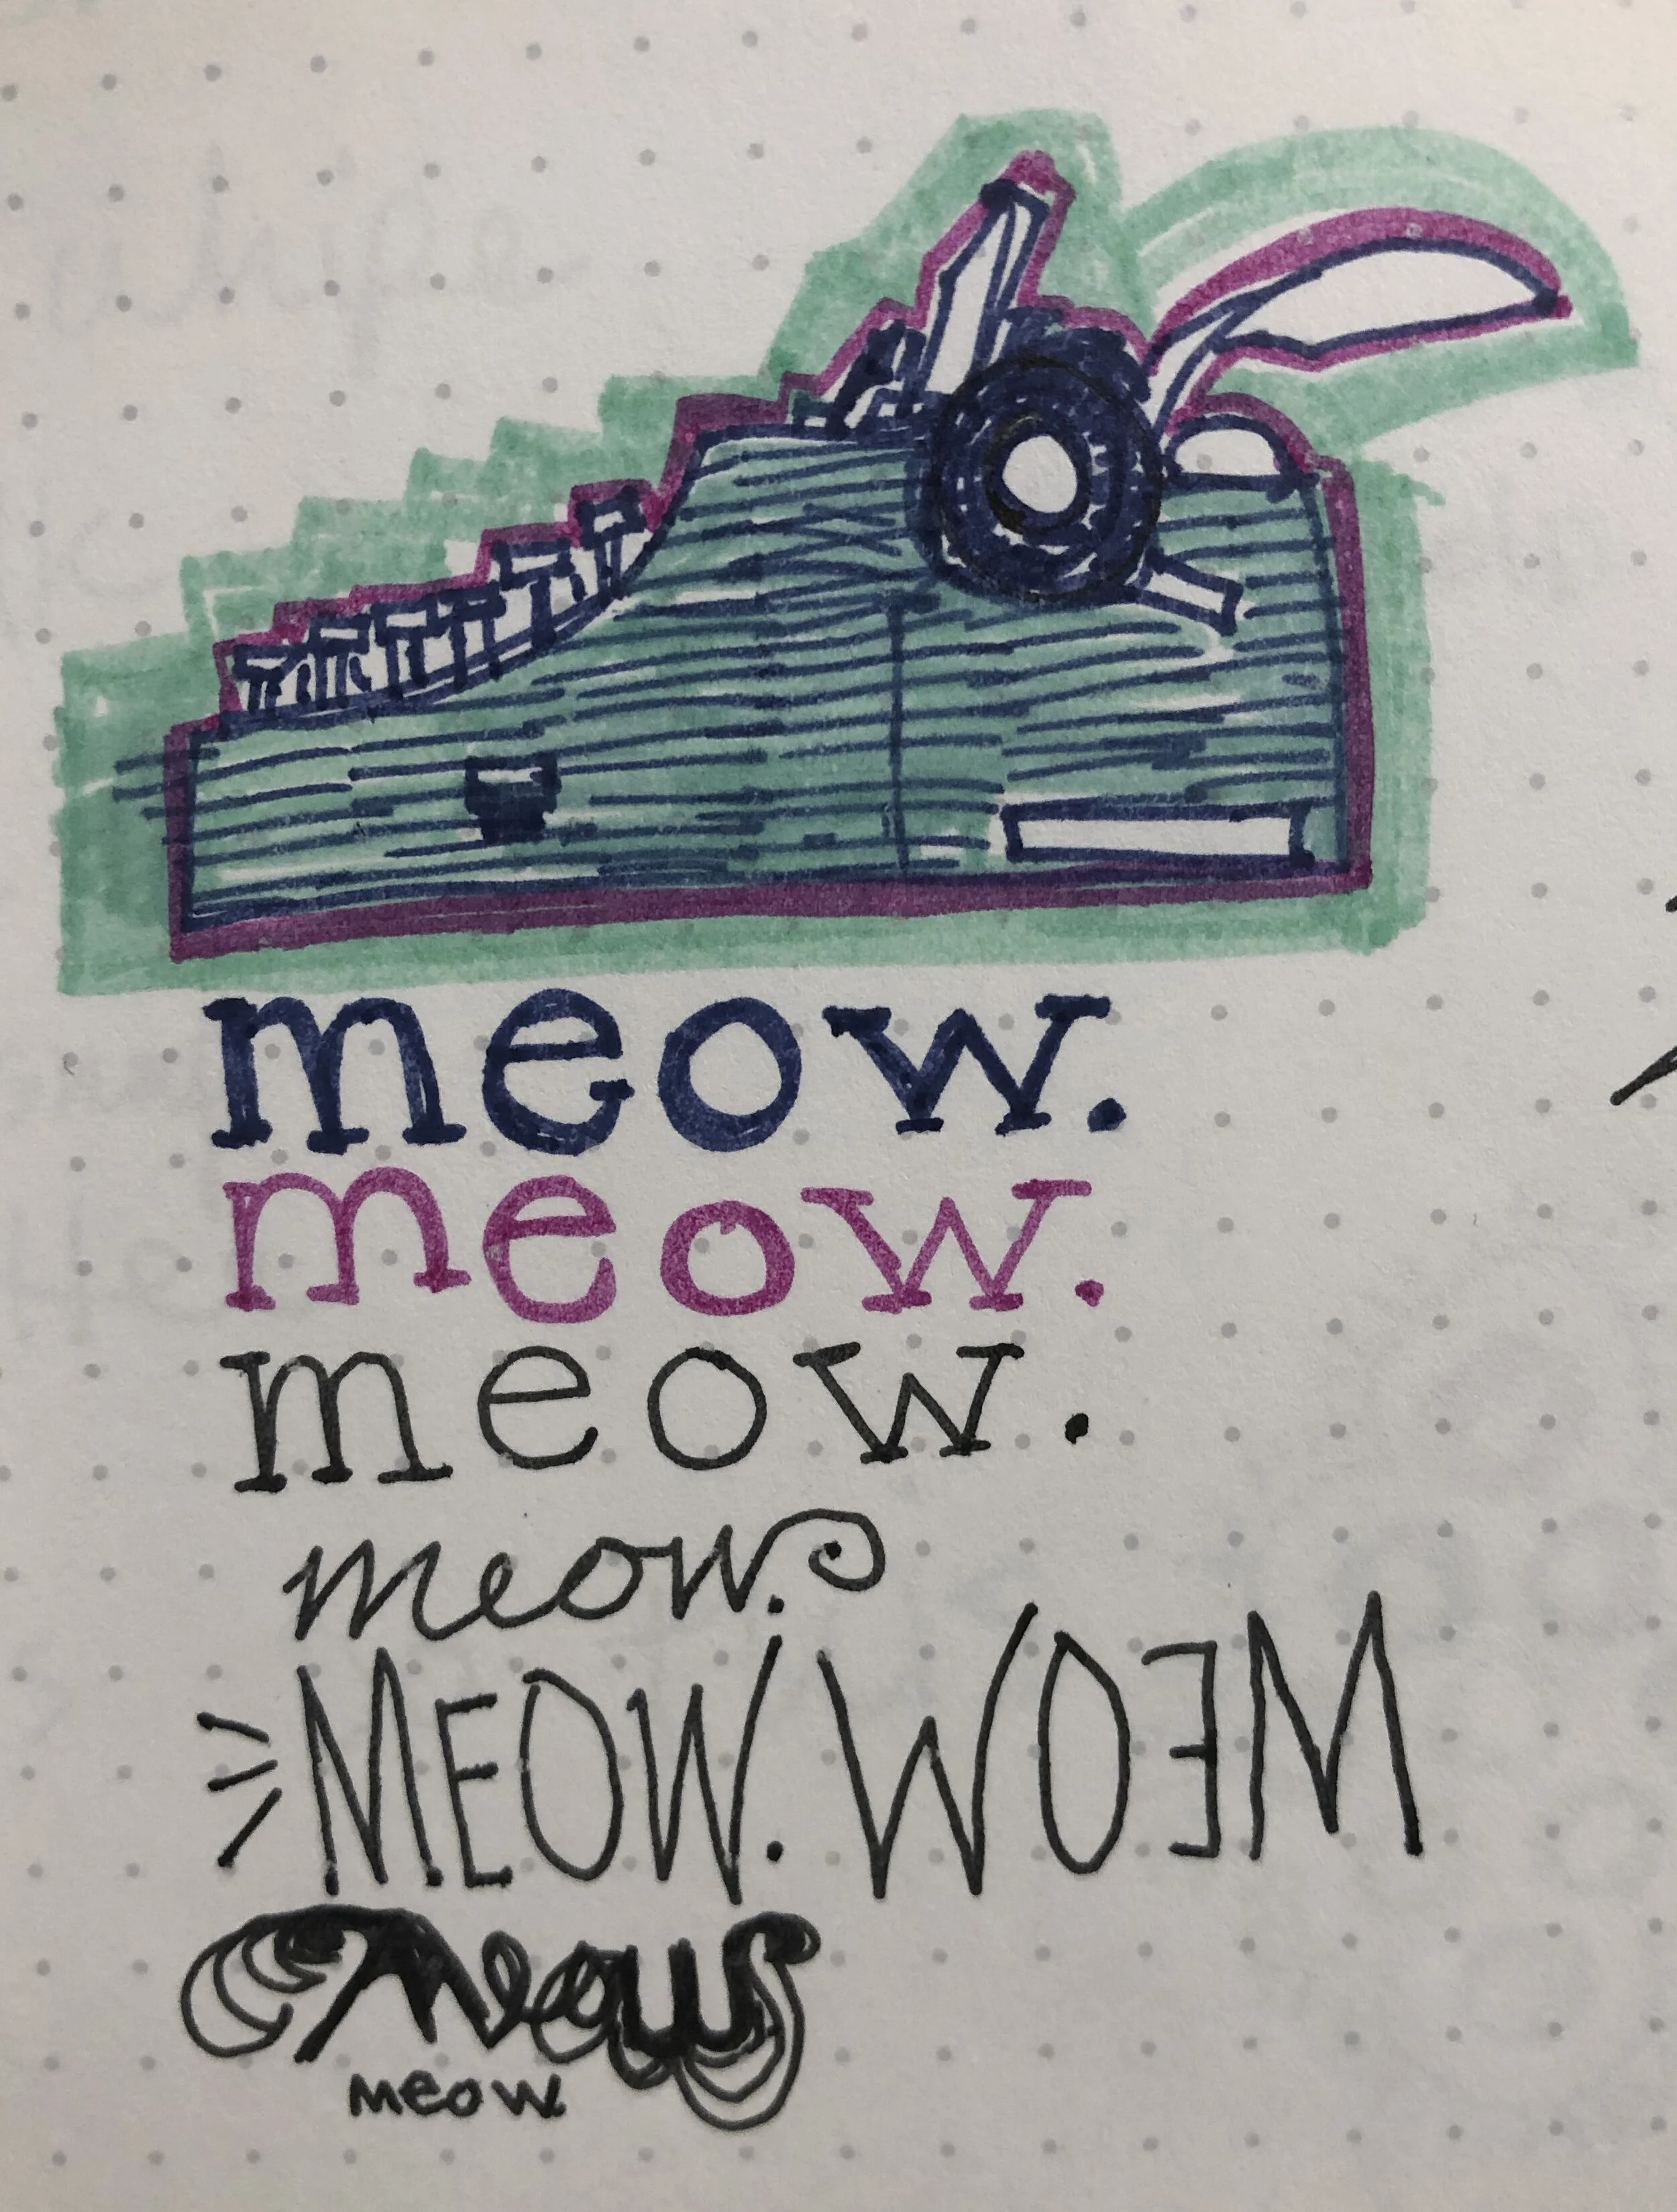 meow.
meow.
meow.
meow.
MEOW. WOƎM
meow
meow.